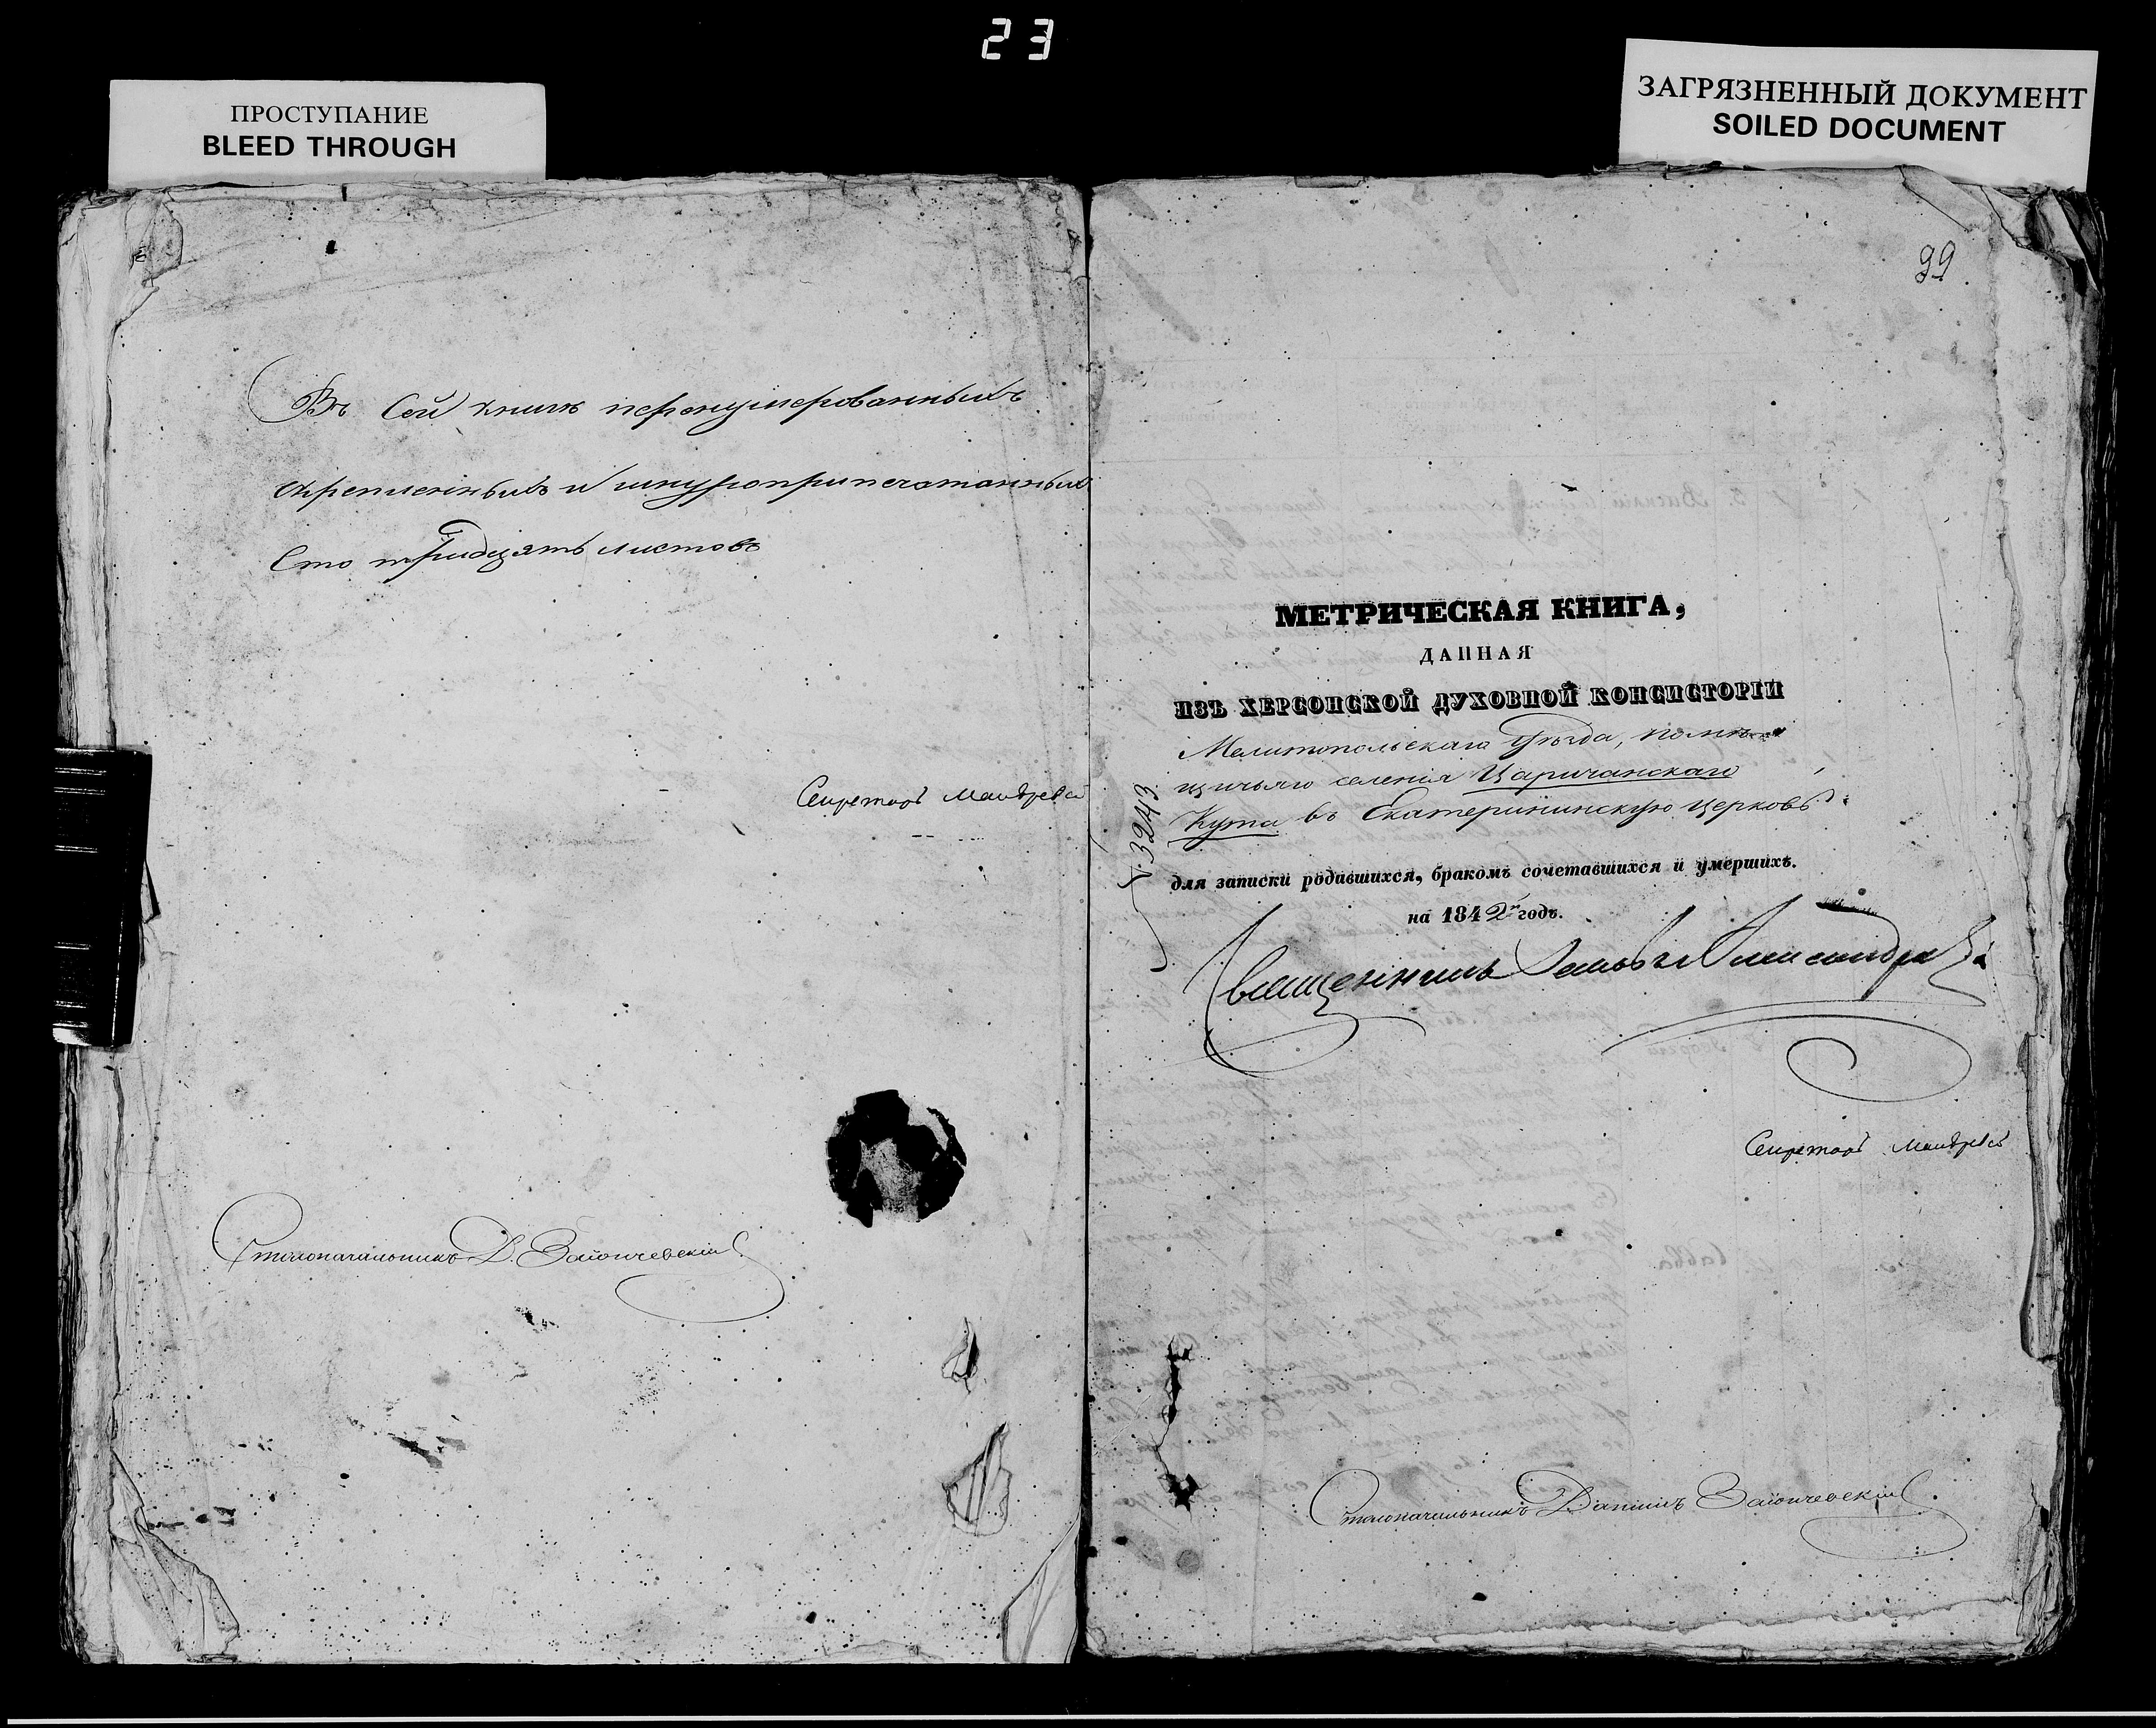 23
ПРОСТУПАНИЕ
BLEED THROUGH
ЗАГРЯЗНЕННЫЙ ДОКУМЕНТ
SOILED DOCUMENT
Въ сей книгѣ перенумерованныхъ
скрепленныхъ и шнуроприпечатанныхъ
Сто тридцять листовъ
Секретарь
Столоначальникъ Д. Заіончевскій
99
МЕТРИЧЕСКАЯ КНИГА,
ДАННАЯ
ИЗЪ ХЕРСОНСКОЙ ДУХОВНОЙ КОНСИСТОРІИ
Мелитопольскаго Уѣзда, помѣ-
щичьяго селенія Царичанскаго
Кута въ Екатерининскую церковь
№ 3243
для записки родившихся, бракомъ сочетавшихся и умершихъ.
на 1842й годъ.
Священникъ
Секретарь
Столоначальникъ Даніилъ Заіончевскій